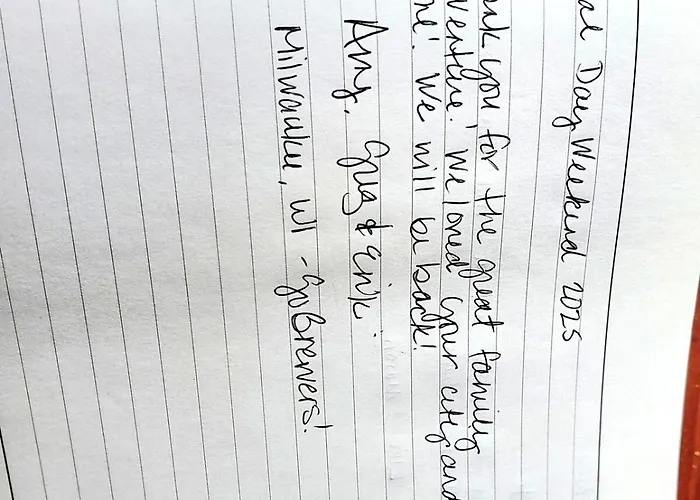 al Day Weekend 2025
nk you for the great family
venture! We loved your city and
me! We will be back!
Amy, Greg & Erik
Milwaukee, WI - Go Brewers!